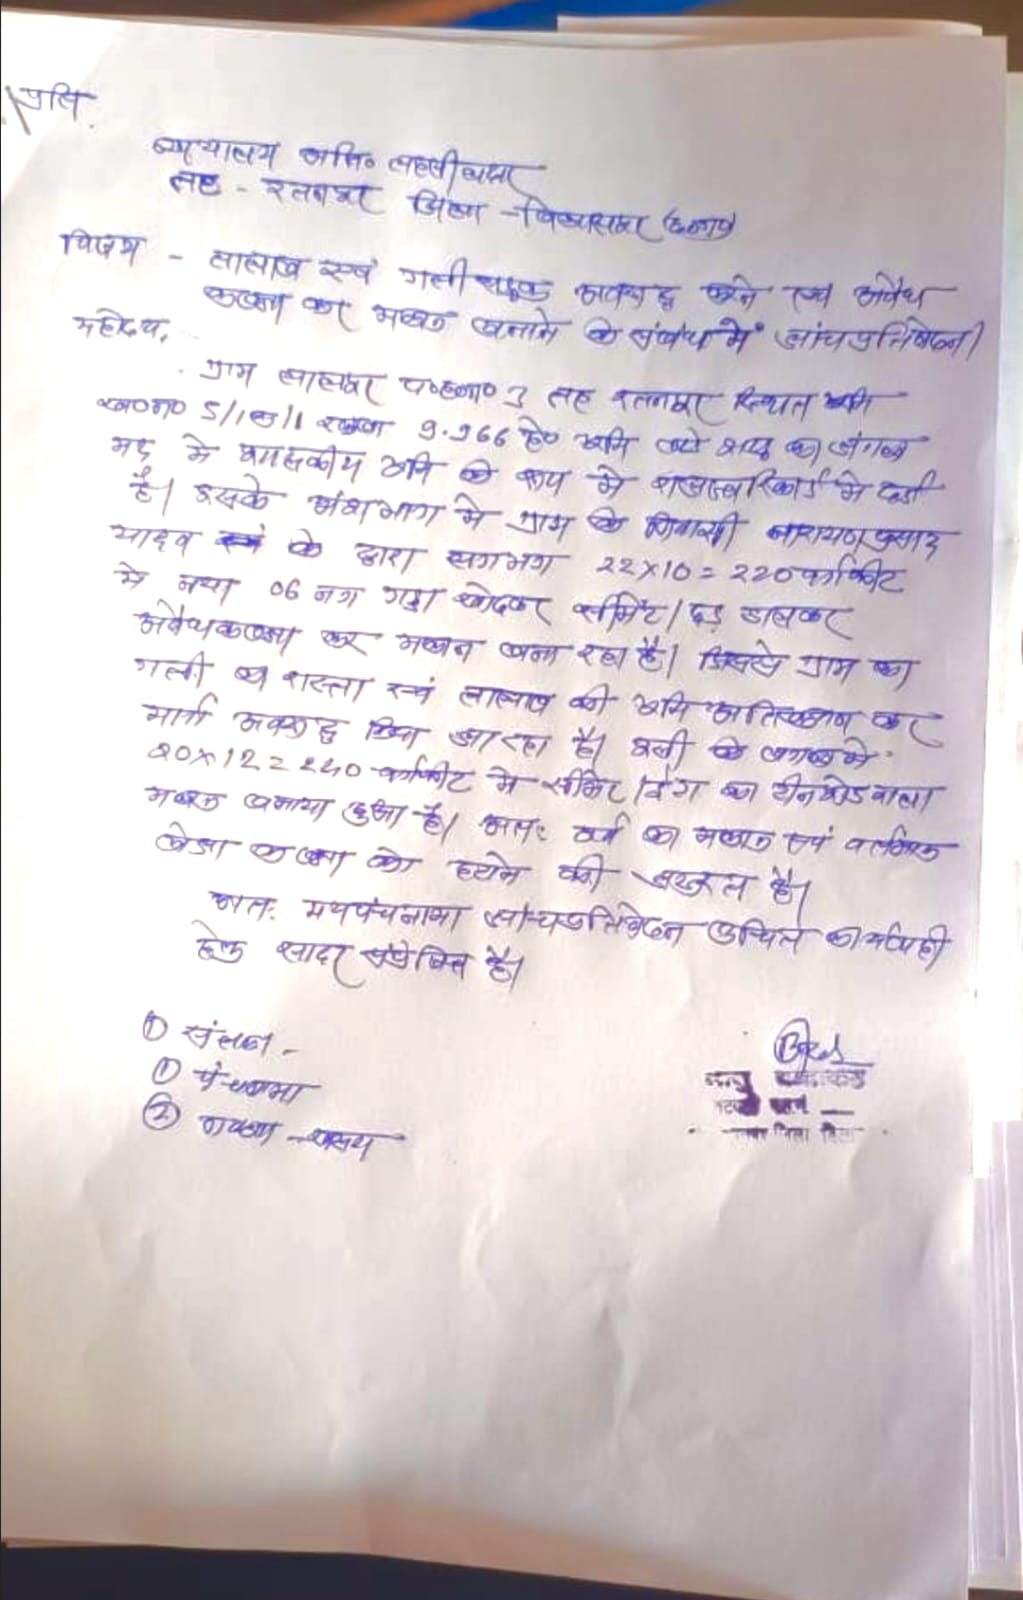 प्रति,
न्यायालय अति० तहसीलदार
तह - रतनपुर जिला - बिलासपुर (छ.ग.)
विषय - तालाब एवं गली सड़क अवरूद्ध करने एवं अवैध
कब्जा कर मकान बनाने के संबंध में जांच प्रतिवेदन।
महोदय,
ग्राम प०ह०न० 3 तह रतनपुर स्थित भूमि
ख०न० 5/1क/1 रकबा 9.966 हे० भूमि जंगल
मद में शासकीय भूमि के रूप में राजस्व रिकार्ड में दर्ज
है। इसके अंश भाग में ग्राम के निवासी नारायण प्रसाद
यादव के द्वारा लगभग 22x10=220 वर्गफीट
में नया 06 नग गड्ढा खोदकर सीमेंट/छड़ डालकर
अवैध कब्जा कर मकान बना रहा है। जिससे ग्राम का
गली व रास्ता एवं तालाब की भूमि अतिक्रमण कर
मार्ग अवरूद्ध किया जा रहा है। इसी के बगल में
20x12=240 वर्गफीट में सीमेंट/ का टीन शेड वाला
मकान बनाया हुआ है। अतः का मकान एवं वर्तमान
बेजा कब्जा को हटाने की जरूरत है।
अतः मय पंचनामा जांच प्रतिवेदन उचित कार्यवाही
हेतु सादर संप्रेषित है।
① संलग्न -
① पंचनामा
② नक्शा - खसरा